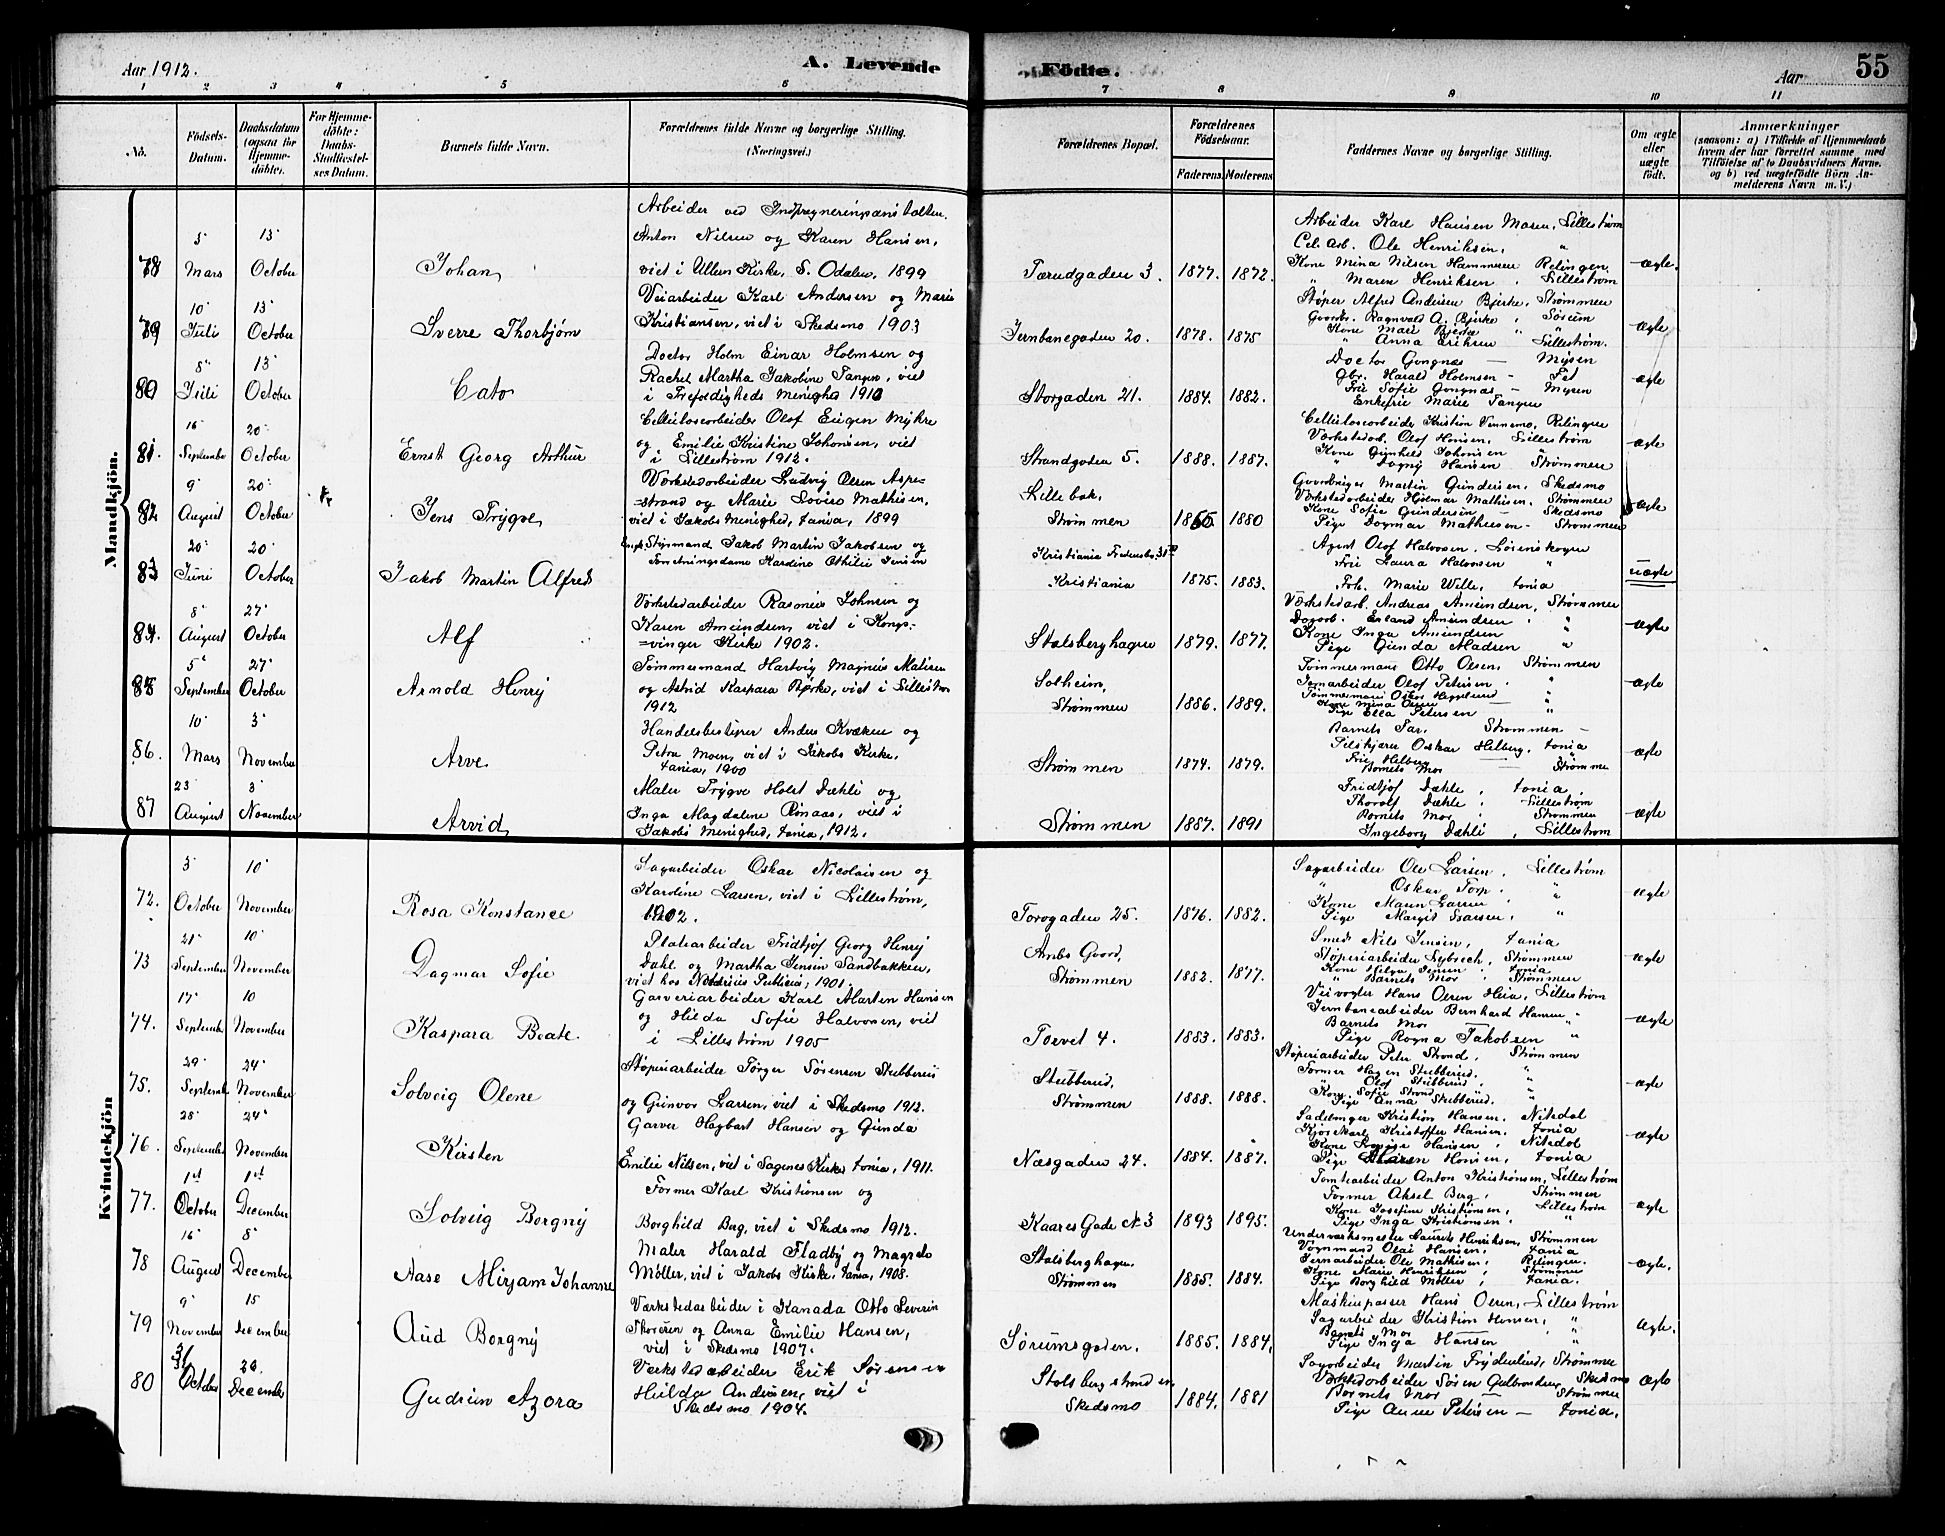 Aar 1912.
A. Levende
Födte.
Aar
55
1 2 3 4 5 6 7 8 9 10 11
No.
Födsels-Datum.
Daabsdatum (ogsaa for Hjemme-döbte).
For Hjemme-döbte: Daabs-Stadfæstel-ses Datum.
Barnets fulde Navn.
Forældrenes fulde Navne og borgerlige Stilling. (Næringsvei.)
Forældrenes Bopæl.
Forældrenes Födselsaar.
Faderens. Moderens.
Faddernes Navne og borgerlige Stilling.
Om ægte eller uægte födt.
Anmærkninger
(saasom: a) i Tilfælde af Hjemmedaab hvem der har forrettet samme med Tilföielse af to Daabsvidners Navne, og b) ved uægtefödte Börn An-melderens Navn m. V.)
Mandkjön.
Arbeider ved Impregneringsanstalten.
Anton Nilsen og Karen Hansen,
viet i Ullern Kirke, S. Odalen, 1899
78 5 Mars 13 October Johan
Tærudgaden 3. 1877. 1872.
Arbeider Karl Hansen Maren, Lillestrøm
Cel. arb. Ole Henriksen, "
Kone Mina Nilsen Hammeren Rælingen
" Maren Henriksen, Lillestrøm
ægte.
79 10 Juli 13 October Sverre Thorbjørn
Veiarbeider Karl Andersen og Marie
Kristiansen, viet i Skedsmo 1903
Jernbanegaden 20. 1878. 1875
Støper Alfred Andersen Bjerke, Strømmen
Gaardbr. Ragnvald A. Bjerke, Sørum
Kone Mari Bjerke " "
" Anna Eriksen Lillestrøm.
ægte
80 8 Juli 13 October Cato
Doctor Holm Einar Holmsen og
Rachel Martha Jakobine Tangen, viet
i Trefoldigheds Menighed 1910
Storgaden 21. 1884. 1882.
Doctor Gongnæs — Mysen
Gbr. Harald Holmsen - Fet
Frú Sofie Gongnæs - Mysen
Enkefrú Marie Tangen
ægte
81. 16 September 20 October Ernst Georg Arthur
Cellulosearbeider Olof Eugen Myhre
og Emilie Kristine Johansen, viet
i Lillestrøm 1912.
Strandgaden 5. 1888. 1887.
Cellulosearbeider Kristian Vennemo, Rælingen
Værkstedarb. Olof Hansen, Lillestrøm
Kone Gunhild Johansen "
" Dagny Hansen Strømmen
ægte
82 9 August 20 October Jens Trygve
Værkstedarbeider Ludvig Olsen Aspe=
=strand og Marie Lovise Mathisen,
viet i Jakobs Menighed, tania, 1899
Lillebæk, Strømmen 1865 1880
Gaardbruger Martin Gundersen, Skedsmo
Værkstedarbeider Hjalmar Mathisen, Strømmen
Kone Sofie Gundersen - Skedsmo
Pige Dagmar Mathiesen - Strømmen
ægte
83 20 Juni 20 October Jakob Martin Alfred
Stigsmand Jakob Martin Jakobsen og
Forretningsdame Kardine Othilie Jensen
Kristiania
Kristiania 1875. 1883.
Agent Olof Halvorsen, Lørenskogen
Frú Laura Halvorsen "
Frk. Marie Wille, tania
uægte
84. 8 August 27 October Alf
Værkstedarbeider Rasmus Johnsen og
Karen Amundsen, viet i Kongs=
=vinger Kirke 1902.
Stalsberghagen 1879. 1877.
Værkstedarb. Andreas Amundsen, Strømmen
Dagarb. Erland Amundsen, "
Kone Inga Amundsen "
Pige Gunda Madsen "
ægte
85 5 September 27 October Arnold Henry
Tømmermand Hartvig Magnus Matisen
og Astrid Kaspara Bjerke, viet i Lillestrøm
1912
Solheim, Strømmen 1886. 1889.
Tømmermand Otto Olsen, Strømmen
Jernarbeider Olof Petersen, "
Tømmermand Oskar Hegglund "
Kone Mina Olsen "
Pige Ella Petersen "
ægte
86. 10 Mars 3 November Arve
Handelsbestyrer Anders Kvæken og
Petra Moen, viet i Jakobs Kirke,
tania, 1900
Strømmen 1874. 1879.
Barnets Far, Strømmen -
Oskar Helberg, tania
Frú Helberg
Barnets Mor Strømmen
ægte
87 23 August 3 November Arvid
Maler Trygve Holst Dæhli og
Inga Magdalene Rinaas, viet i
Jakobs Menighed, tania, 1912.
Strømmen 1887. 1891
Fridtjof Dæhle, tania,
Thorolf Dæhle, Lillestrøm
Barnets Mor, Strømmen
Ingeborg Dæhli, Lillestrøm
ægte
Kvindekjön
72. 3 October 10 November Rosa Konstance
Sagarbeider Oskar Nicolaisen og
Karoline Larsen, viet i Lillestrøm,
1902.
Torvgaden 25. 1876. 1882.
Sagarbeider Ole Larsen, Lillestrøm
" Oskar Torp, "
Kone Maren Larsen, "
Pige Margit Larsen, "
ægte
73 21 September 10 November Dagmar Sofie
Platearbeider Fridtjof Georg Henry
Dahl og Martha Jensen Sandbakken,
viet hos Notarius Publicus, 1901.
Strømmen 1882. 1877.
Smed Nils Jensen, tania
Støperiarbeider Lybech, Strømmen
Kone Helga Jensen, tania
" Barnets Mor, Strømmen
ægte
74. 17 Septemb. 10 November Kaspara Beate
Garveriarbeider Karl Marten Hansen
og Hilda Sofie Halvorsen, viet
i Lillestrøm 1905
Torvet 4. 1883. 1883.
Veivogter Hans Olsen Heia, Lillestrøm
Jernbanearbeider Bernhard Hansen "
Barnets Mor
Pige Ragna Jakobsen "
ægte
75. 29 Septemb. 24 November Solveig Olene
Støperiarbeider Jørger Sørensen Stubberud
og Gunvor Larsen, viet i Skedsmo 1912.
Stubberud, Strømmen 1888. 1888.
Støperiarbeider Peter Strand, Strømmen
Former Hagen Stubberud, "
" Olof Stubberud, "
Kone Sofie Strand "
Pige Anna Stubberud, "
ægte
76. 28 September 24 November Kirsten
Garver Hagbart Hansen og Gunda
Emilie Nilsen, viet i Sagenes Kirke tania, 1911.
Næsgaden 24. 1884. 1887.
Sadelmager Kristian Hansen, Nitedal
Kjørekarl Kristoffer Hansen, tania
Kone Lovise Hansen, Nitedal
Pige Maren Hansen, tania
ægte
77. 1st October 1st December Solveig Borgny
Former Karl Kristiansen og
Borghild Berg, viet i Skedsmo 1912.
Kaares Gade N. 3 1893 1895.
Tomtearbeider Anton Kristiansen, Lillestrøm
Former Aksel Berg, Strømmen
Kone Josefine Kristiansen, Lillestrøm
Pige Inga Kristiansen, "
ægte
78 16 August 8 December Aase Mirjam Johanne
Maler Harald Fladby og Magda
Möller, viet i Jakobs Kirke, tania, 1908.
Stalsberghagen, Strømmen 1885. 1884.
Underværksmester Laurits Henriksen, Strømmen
Vognmand Olai Hansen, tania
Jernarbeider Ole Mathisen, Rælingen
Kone Marie Henriksen, Strømmen
Pige Borghild Möller, tania.
ægte.
79 9 November 15 December Aud Borgny
Værkstedarbeider i Kanada Otto Severin
Skovren og Anna Emilie Hansen,
viet i Skedsmo 1907.
Sørumsgaden. 1885. 1884.
Maskinpasser Hans Olsen, Lillestrøm
Sagarbeider Kristian Hansen, "
Barnets Mor "
Pige Inga Hansen "
ægte.
80 31 October 26 December Gudrun Azora
Værkstedarbeider Erik Sørensen
Hulda Andersen, viet i
Skedsmo 1904.
Stalsbergstranden, Skedsmo 1884. 1881
Sagarbeider Martin Fryderlund, Strømmen
Værkstedarbeider Søren Gulbrandsen, Skedsmo
Barnets Mor — Strømmen
Pige Anne Petersen — tania.
ægte